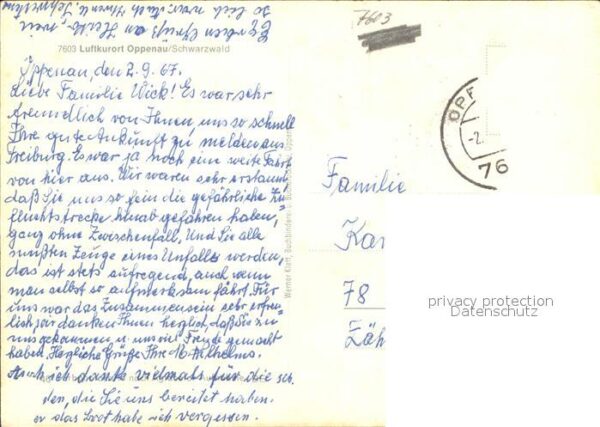 7603 Luftkurort Oppenau/Schwarzwald
Oppenau, den 2.9.67.
Liebe Familie Wick! Es war sehr
freundlich von Ihnen, uns so schnell
Ihre gute Ankunft zu melden aus
Freiburg. Es war ja noch eine weite Fahrt
von hier aus. Wir waren sehr erstaunt
daß Sie uns so fein die gefährliche Zu-
fluchtstrecke hinab gefahren haben,
ganz ohne Zwischenfall. Und Sie alle
mußten Zeuge eines Unfalles werden,
das ist stets aufregend, auch wenn
man selbst so aufmerksam fährt. Für
uns war das Zusammensein sehr erfreu-
lich, wir danken Ihnen herzlich, daß Sie zu
uns gekommen u. uns viel Freude gemacht
haben. Herzliche Grüße Ihre Wilhelms.
Auch ich danke vielmals für die
den, die Sie uns bereitet haben.
das Brot habe ich vergessen.
7603
OPP
-2.
76
Familie
Kar
78
Zäh
Werner Klatt, Buchbinderei
privacy protection
Datenschutz